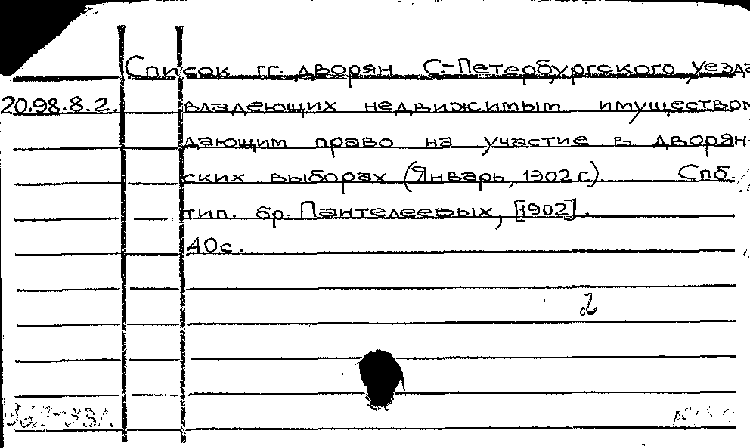 Список гг. дворян С-Петербургского уезда
20.98.8.2. владеющих недвижимым имуществом
дающим право на участие в дворян-
ских выборах (Январь, 1902 г.) Спб.
тип. бр. Пантелеевых, [1902].
40с.
2